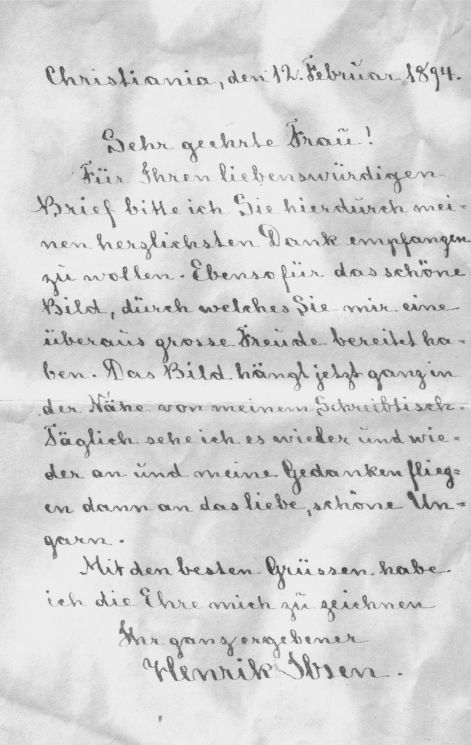 Christiania, den 12. Februar 1894.
Sehr geehrte Frau!
Für Ihren liebenswürdigen
Brief bitte ich Sie hierdurch mei-
nen herzlichsten Dank empfangen
zu wollen. Ebenso für das schöne
Bild, durch welches Sie mir eine
überaus grosse Freude bereitet ha-
ben. Das Bild hängt jetzt ganz in
der Nähe von meinem Schreibtisch.
Täglich sehe ich es wieder und wie-
der an und meine Gedanken flieg-
en dann an das liebe, schöne Un-
garn.
Mit den besten Grüssen habe
ich die Ehre mich zu zeichnen
Ihr ganz ergebener
Henrik Ibsen.